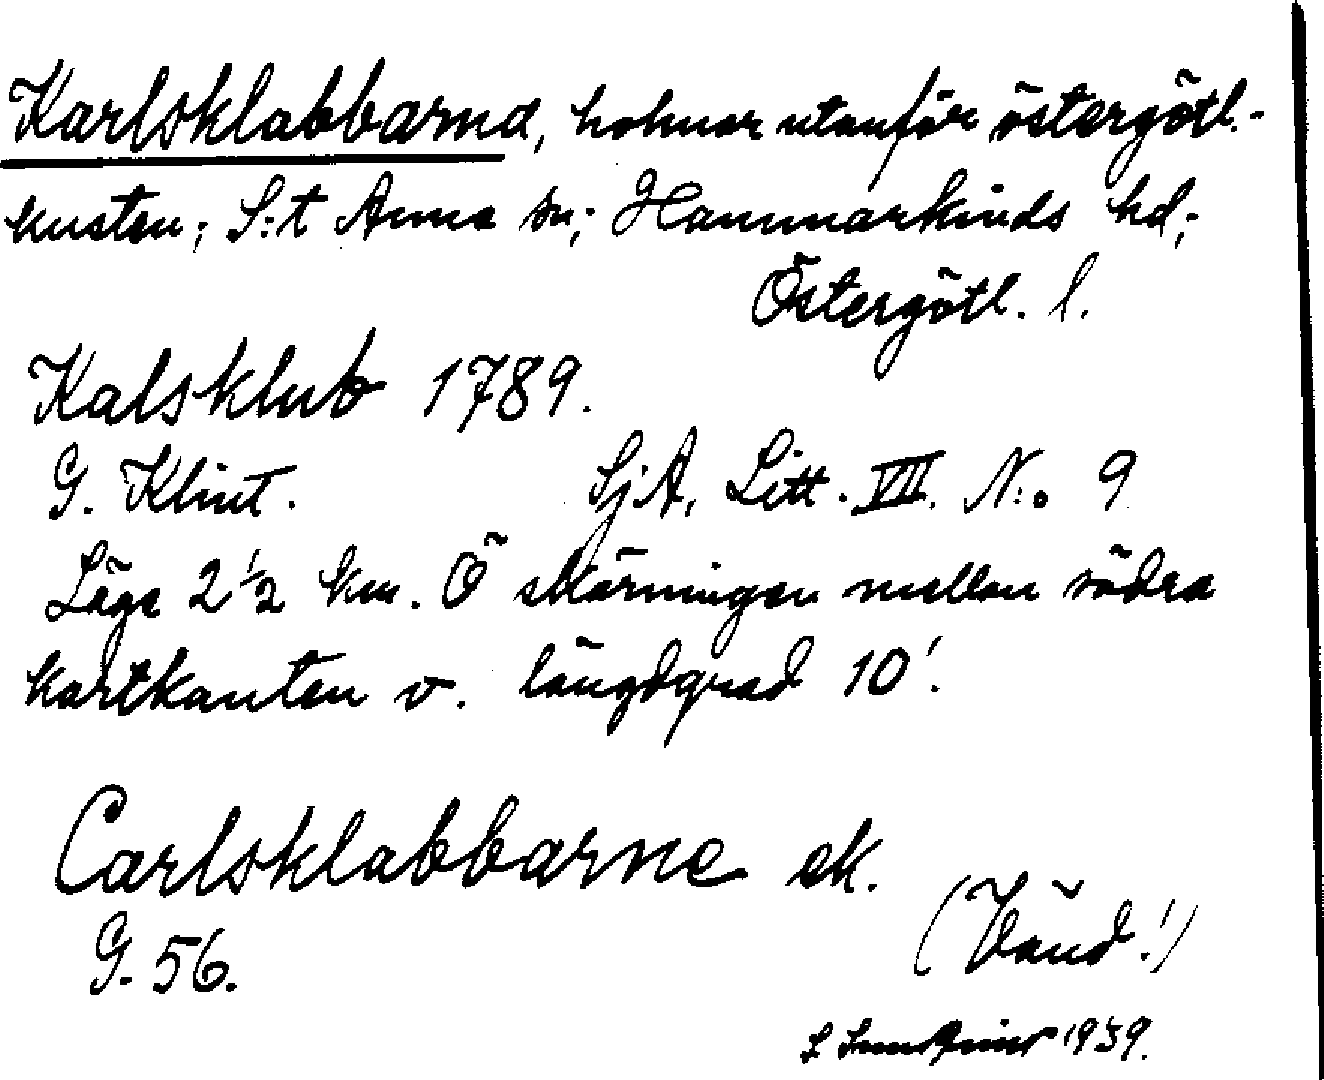 Karlsklabbarna, holmar utanför östergötl.-
kusten; S:t Anna sn; Hammarkinds hd;
Östergötl. l.
Kalsklub 1789.
G. Klint. SjA, Litt. VII. N:o 9
Läge 2 1/2 km. Ö skärningen mellan södra
kartkanten o. längdgrad 10'.
Carlsklabbarne ek.
G. 56.
(Vänd!)
1939.